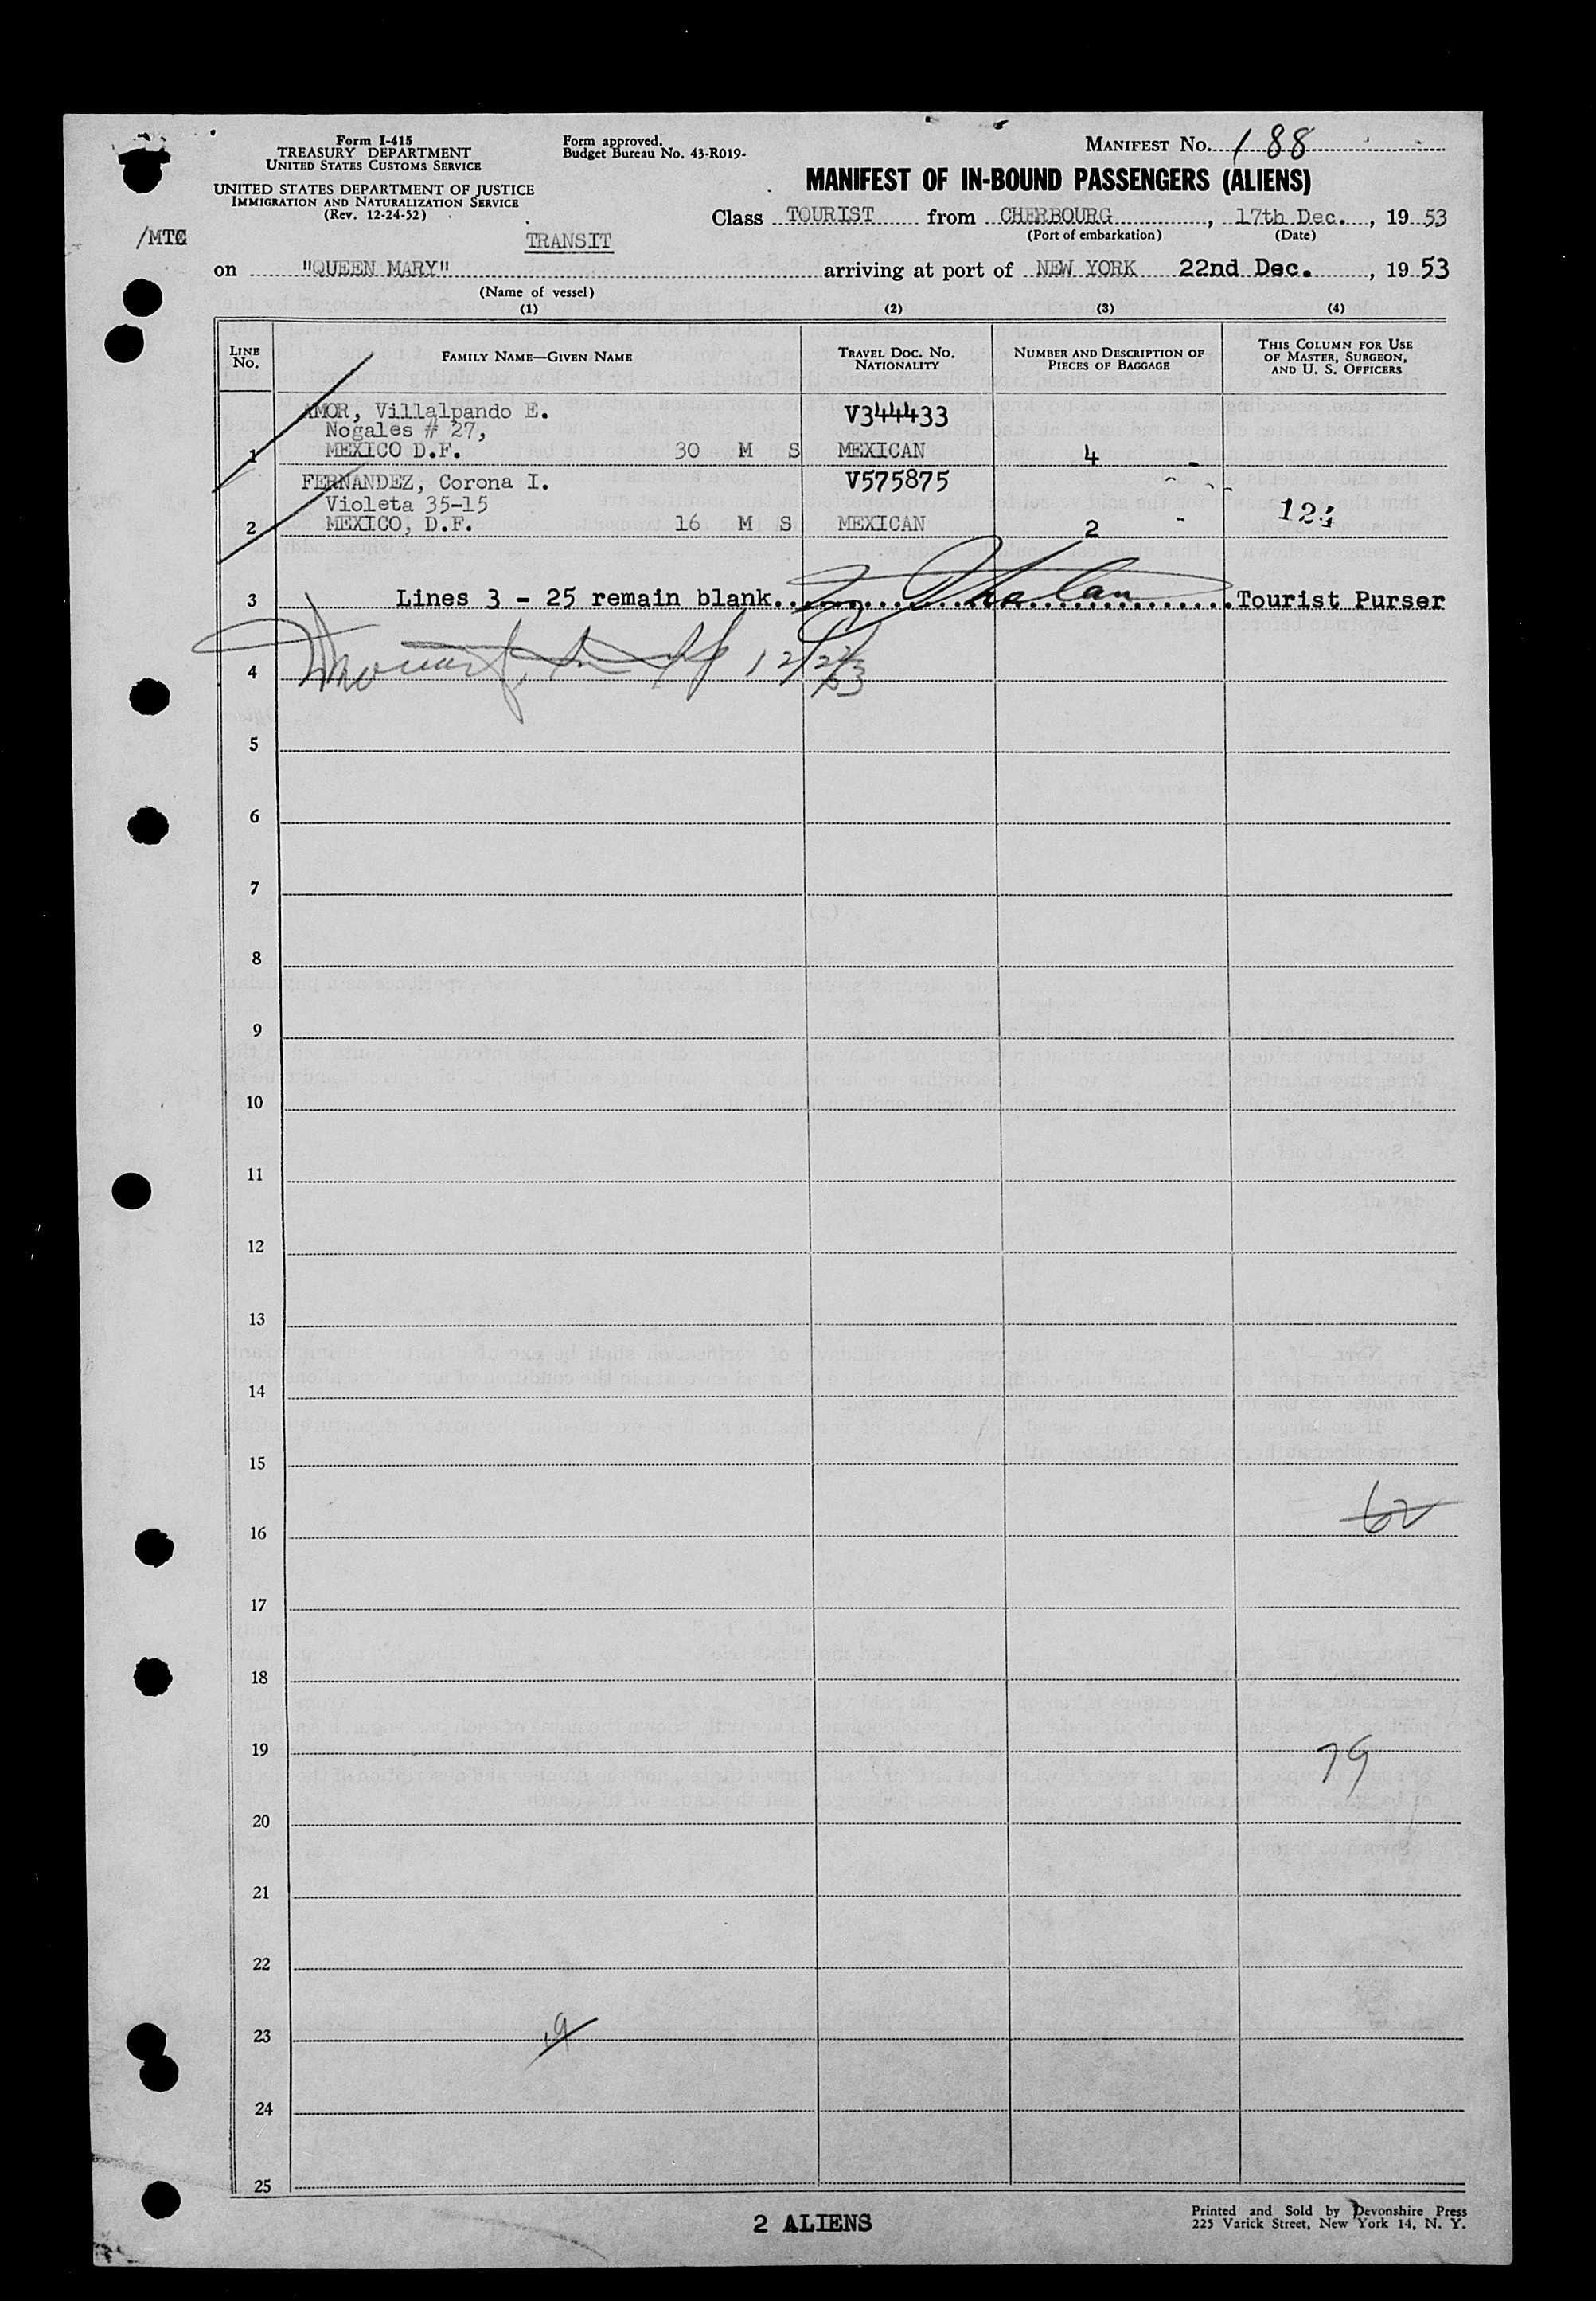 Form I-415
TREASURY DEPARTMENT
UNITED STATES CUSTOMS SERVICE
UNITED STATES DEPARTMENT OF JUSTICE
IMMIGRATION AND NATURALIZATION SERVICE
(Rev. 12-24-52)
Form approved.
Budget Bureau No. 43-R019-
MANIFEST No. 188
MANIFEST OF IN-BOUND PASSENGERS (ALIENS)
Class TOURIST from CHERBOURG, 17th Dec., 19 53
(Port of embarkation) (Date)
TRANSIT
on "QUEEN MARY" arriving at port of NEW YORK 22nd Dec., 19 53
(Name of vessel)
(1) (2) (3) (4)
LINE No. FAMILY NAME—GIVEN NAME TRAVEL DOC. No. NATIONALITY NUMBER AND DESCRIPTION OF PIECES OF BAGGAGE THIS COLUMN FOR USE OF MASTER, SURGEON, AND U. S. OFFICERS
AMOR, Villalpando E. V344433
Nogales # 27,
1 MEXICO D.F. 30 M S MEXICAN 4 -
FERNANDEZ, Corona I. V575875
Violeta 35-15
2 MEXICO, D.F. 16 M S MEXICAN 2 -
3 Lines 3 - 25 remain blank. Tourist Purser
4 12/22/53
5
6
7
8
9
10
11
12
13
14
15
16 62
17
18
19 79
20
21
22
23 19
24
25
2 ALIENS
Printed and Sold by Devonshire Press
225 Varick Street, New York 14, N. Y.